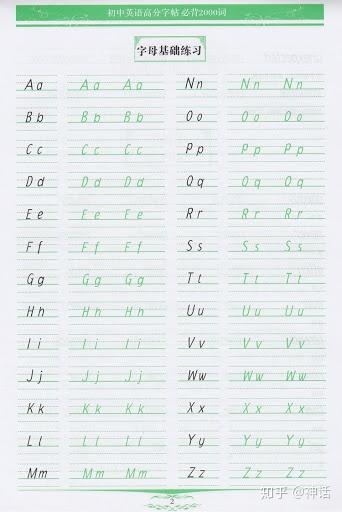 初中英语高分字帖 必背2000词
字母基础练习
Aa Aa Aa Nn Nn Nn
Bb Bb Bb Oo Oo Oo
Cc Cc Cc Pp Pp Pp
Dd Dd Dd Qq Qq Qq
Ee Ee Ee Rr Rr Rr
Ff Ff Ff Ss Ss Ss
Gg Gg Gg Tt Tt Tt
Hh Hh Hh Uu Uu Uu
Ii Ii Ii Vv Vv Vv
Jj Jj Jj Ww Ww Ww
Kk Kk Kk Xx Xx Xx
Ll Ll Ll Yy Yy Yy
Mm Mm Mm Zz Zz Zz
2
知乎 @神话